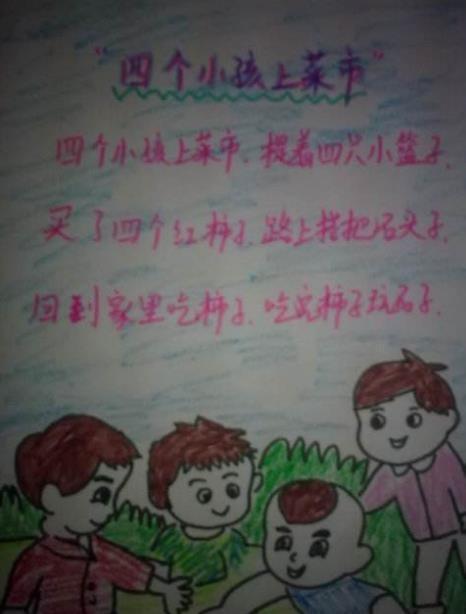 “四个小孩上菜市”
四个小孩上菜市、提着四只小篮子、
买了四个红柿子、路上捡把石头子、
回到家里吃柿子、吃完柿子玩石子、